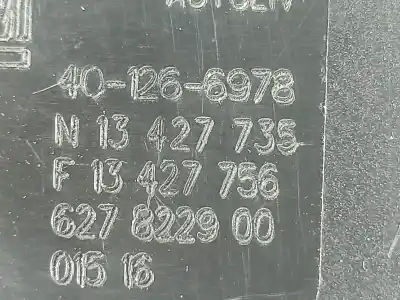 40-126-6978
N 13 427 735
F 13 427 756
627 8229 00
015 16